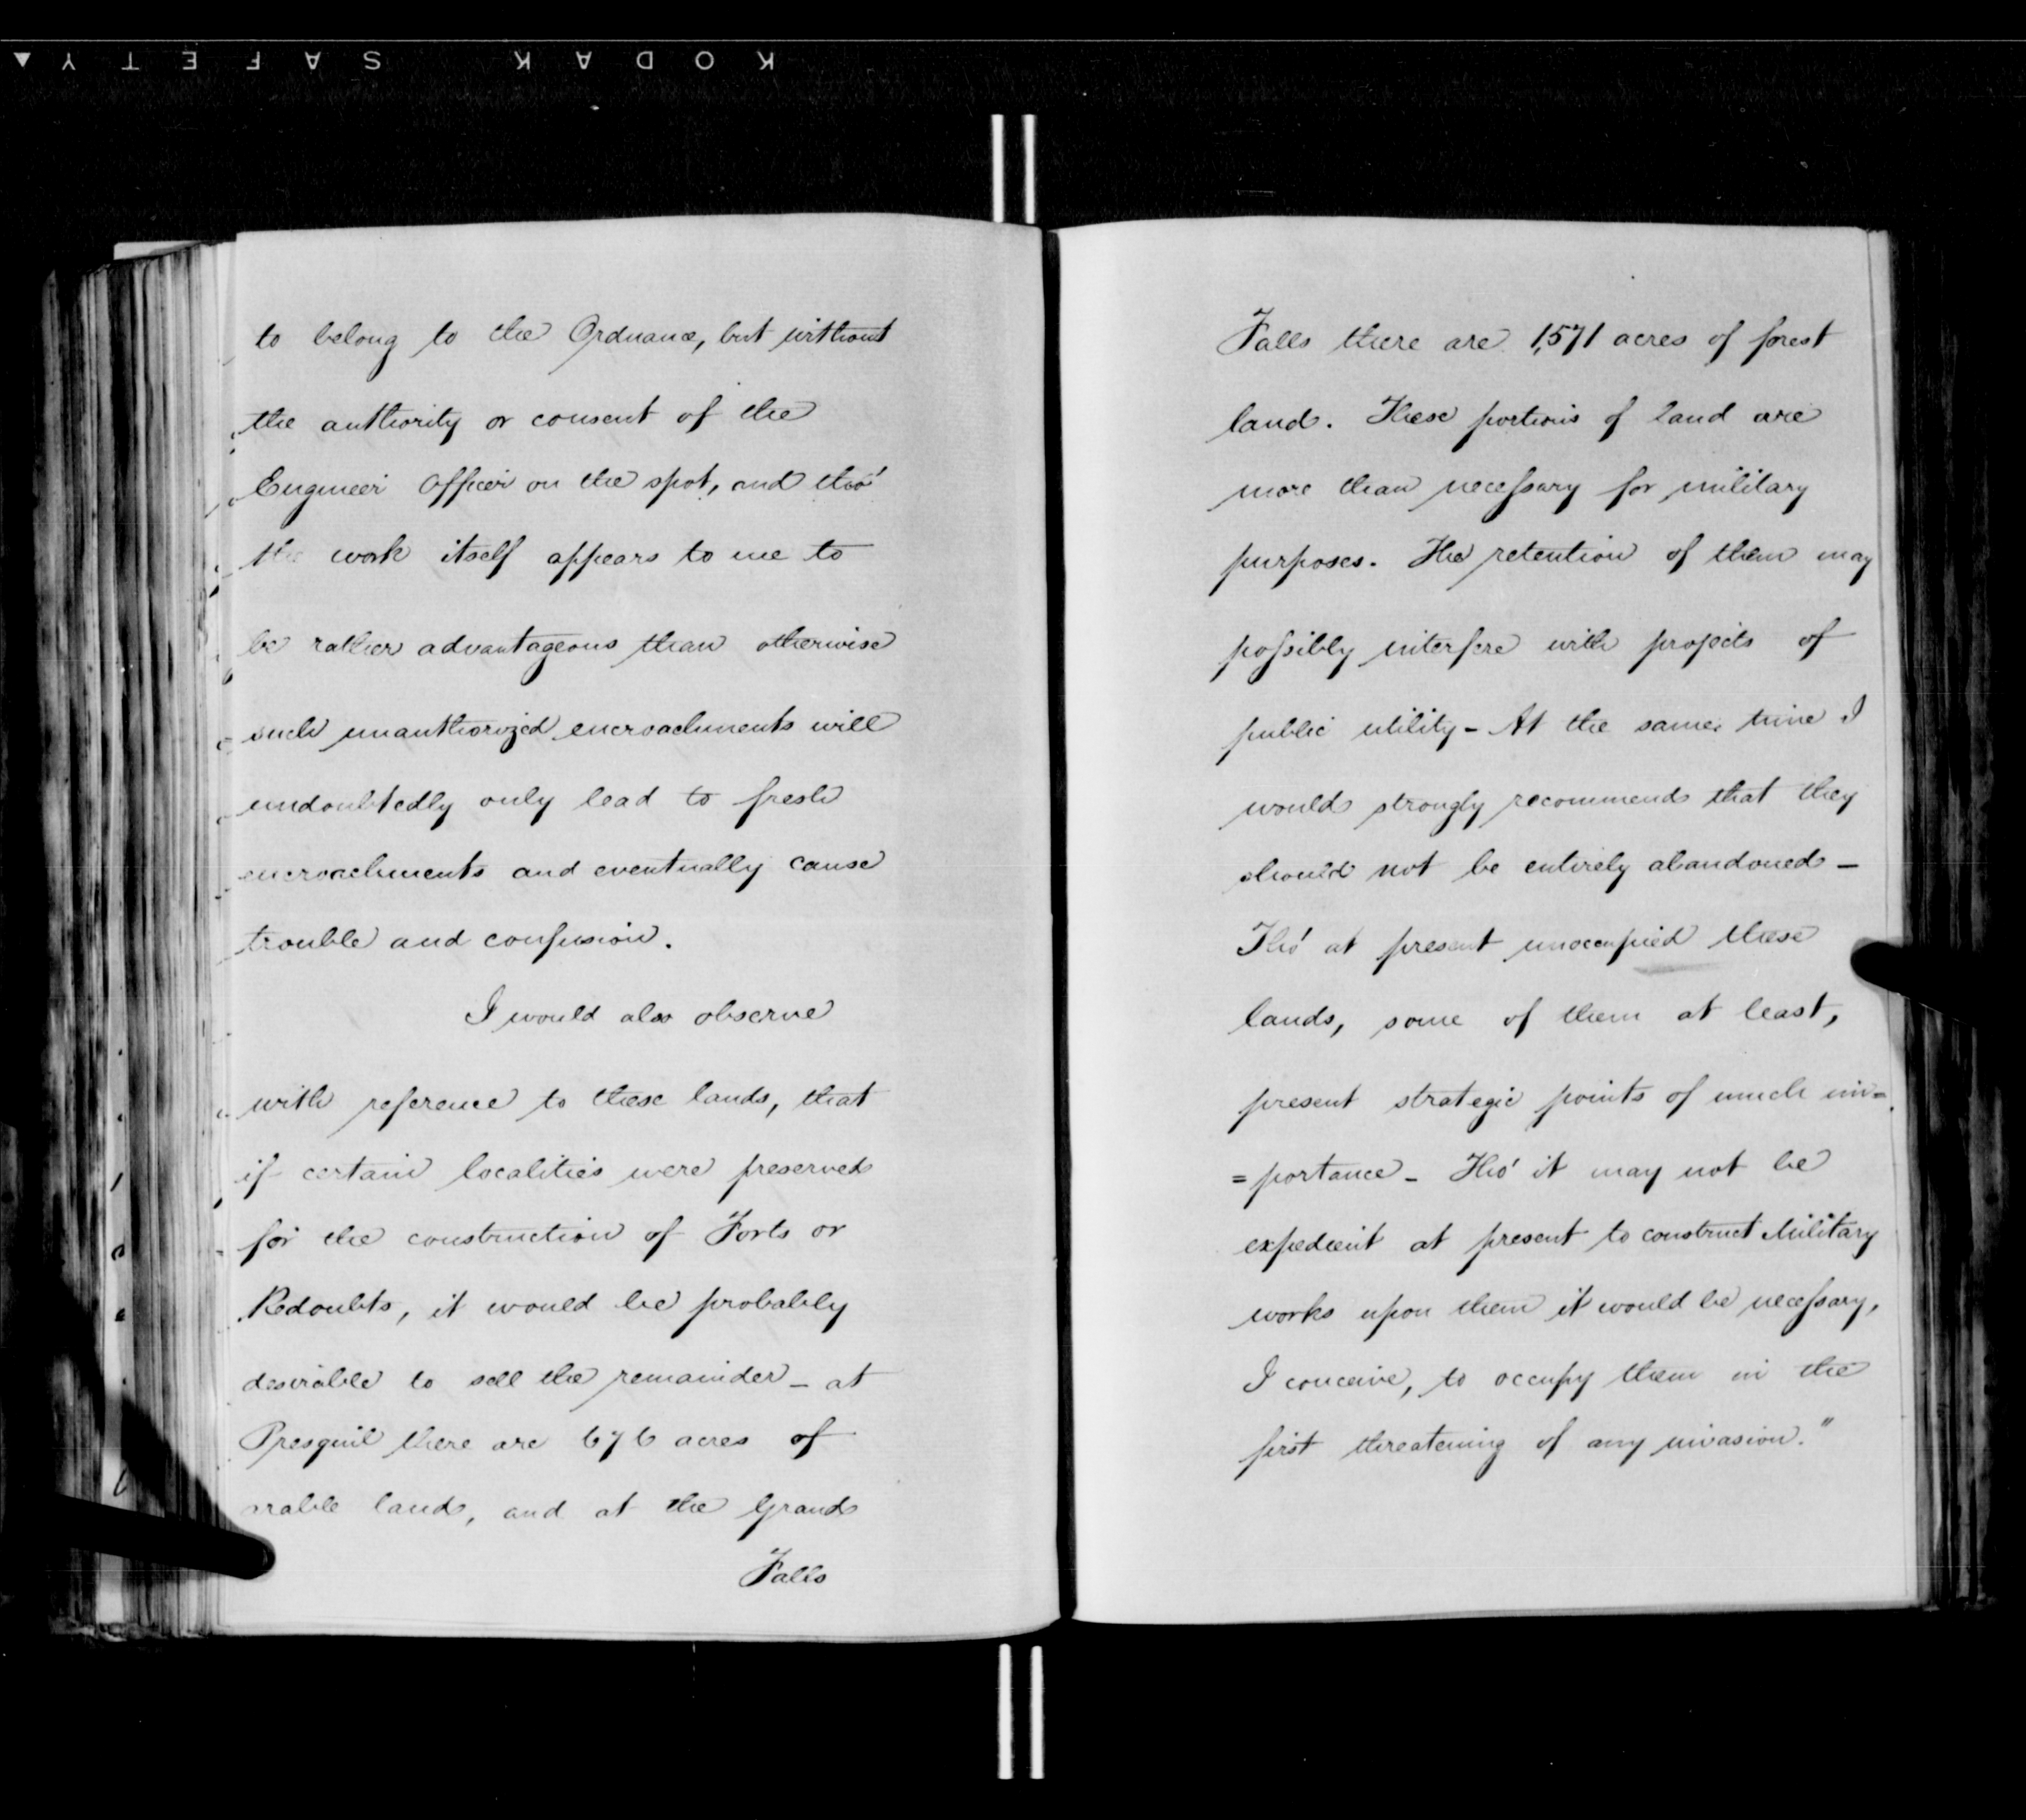 KODAK SAFETY
to belong to the Ordnance, but without
the authority or consent of the
Engineer Officer on the spot, and tho'
the work itself appears to me to
be rather advantageous than otherwise
such unauthorized encroachments will
undoubtedly only lead to fresh
encroachments and eventually cause
trouble and confusion.
I would also observe
with reference to these lands, that
if certain localities were preserved
for the construction of Forts or
Redoubts, it would be probably
desirable to sell the remainder - at
Presquil there are 676 acres of
arable land, and at the Grand
Falls
Falls there are 1,571 acres of forest
land. These portions of land are
more than necessary for military
purposes. The retention of them may
possibly interfere with projects of
public utility - At the same time I
would strongly recommend that they
should not be entirely abandoned -
Tho' at present unoccupied these
lands, some of them at least,
present strategic points of much im=
=portance - Tho' it may not be
expedient at present to construct Military
works upon them it would be necessary,
I conceive, to occupy them in the
first threatening of any invasion."